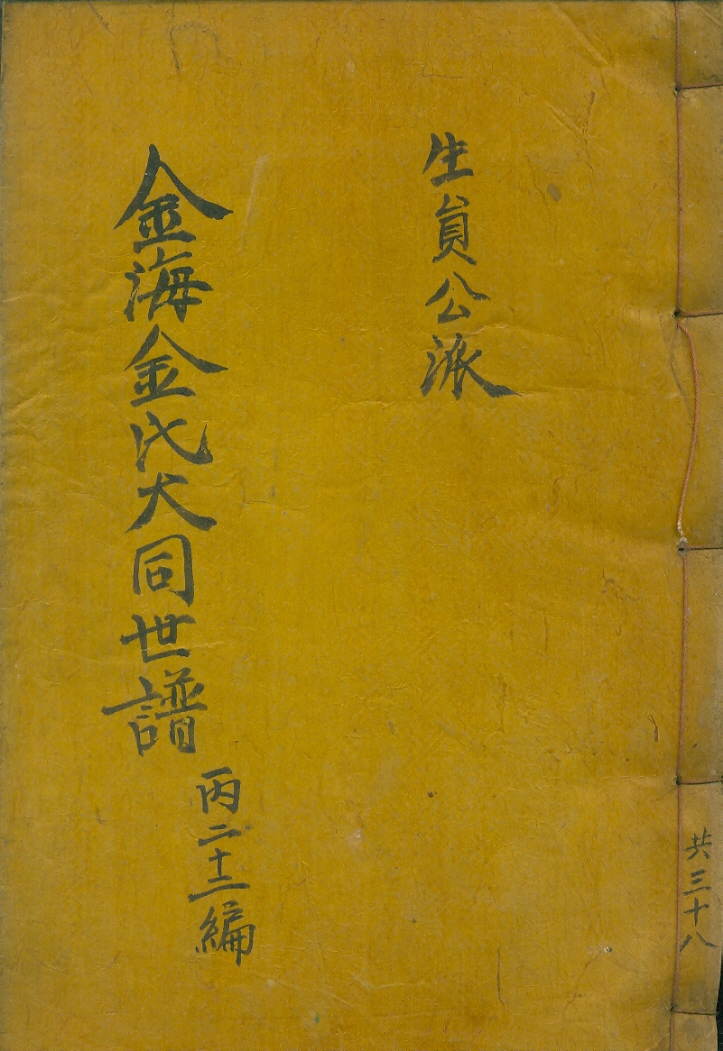 共三十八
生員公派
金海金氏大同世譜
丙二十二編